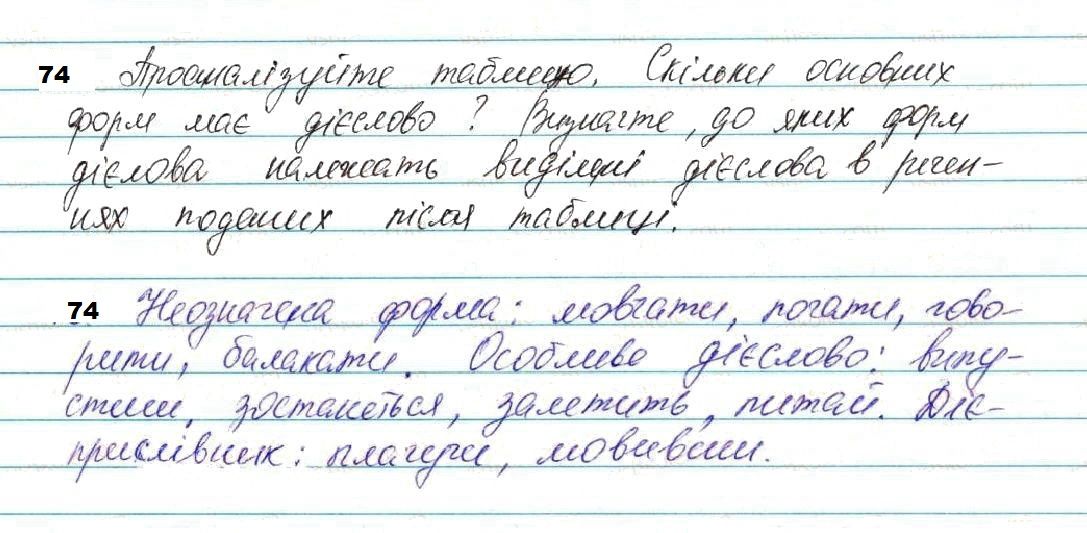 74 Проаналізуйте таблицю. Скільки основних
форм має дієслово? Визначте, до яких форм
дієлова належать виділені дієслова в речен-
нях поданих після таблиці.
74 Неозначена форма: мовчати, почати, гово-
рити, балакати. Особливо дієслово: випу-
стиш, зостанеться, залетить, питай. Діє-
прислівник: плачучи, мовивши.